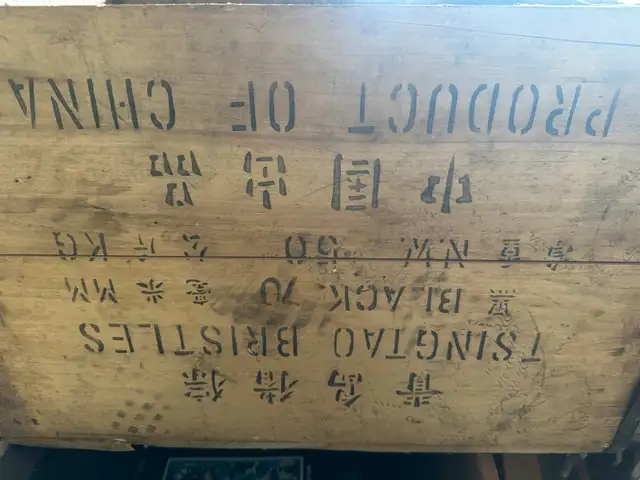 青岛猪
TSINGTAO BRISTLES
黑 BLACK 70 毫米 MM
净重 N.W. 50 公斤 KG
中国出品
PRODUCT OF CHINA